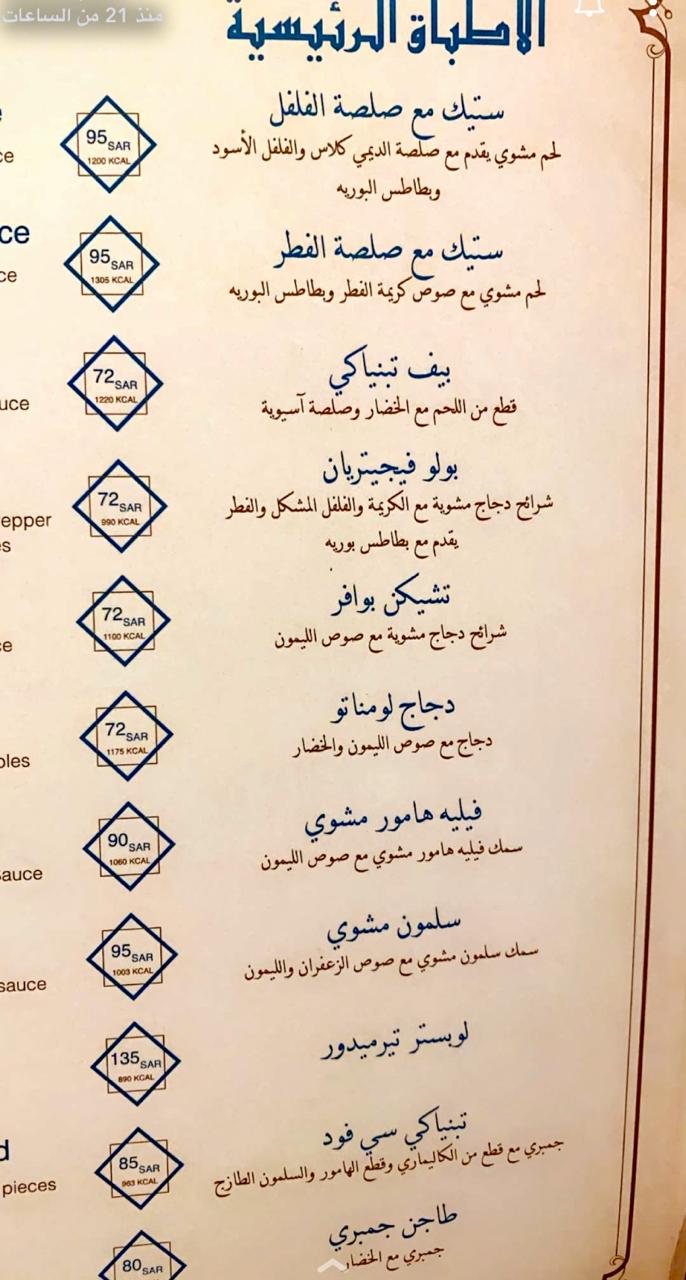 منذ 21 من الساعات
الأطباق الرئيسية
ستيك مع صلصة الفلفل
95 SAR
1200 KCAL
لحم مشوي يقدم مع صلصة الديمي كلاس والفلفل الأسود
وبطاطس البوريه
ce
ce
ستيك مع صلصة الفطر
95 SAR
1305 KCAL
لحم مشوي مع صوص كريمة الفطر وبطاطس البوريه
ce
بيف تبنياكي
72 SAR
1220 KCAL
قطع من اللحم مع الخضار وصلصة آسيوية
uce
بولو فيجيتريان
72 SAR
990 KCAL
شرائح دجاج مشوية مع الكريمة والفلفل المشكل والفطر
يقدم مع بطاطس بوريه
epper
es
تشيكن بوافر
72 SAR
1100 KCAL
شرائح دجاج مشوية مع صوص الليمون
ce
دجاج لومناتو
72 SAR
1175 KCAL
دجاج مع صوص الليمون والخضار
bles
فيليه هامور مشوي
90 SAR
1060 KCAL
سمك فيليه هامور مشوي مع صوص الليمون
Sauce
سلمون مشوي
95 SAR
1003 KCAL
سمك سلمون مشوي مع صوص الزعفران والليمون
sauce
لوبستر تيرميدور
135 SAR
890 KCAL
تبنياكي سي فود
85 SAR
963 KCAL
جمبري مع قطع من الكاليماري وقطع الهامور والسلمون الطازج
d
pieces
طاجن جمبري
80 SAR
جمبري مع الخضار